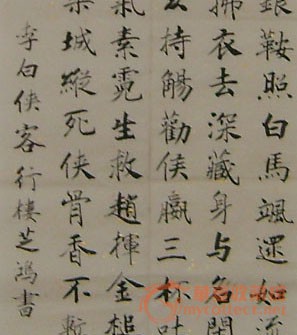 銀鞍照白馬颯遝如流
拂衣去深藏身与名閑
亥持觴勸侯嬴三杯吐
氣素霓生救趙揮金槌
梁城縱死侠骨香不慙
李白侠客行樓芝鴻書